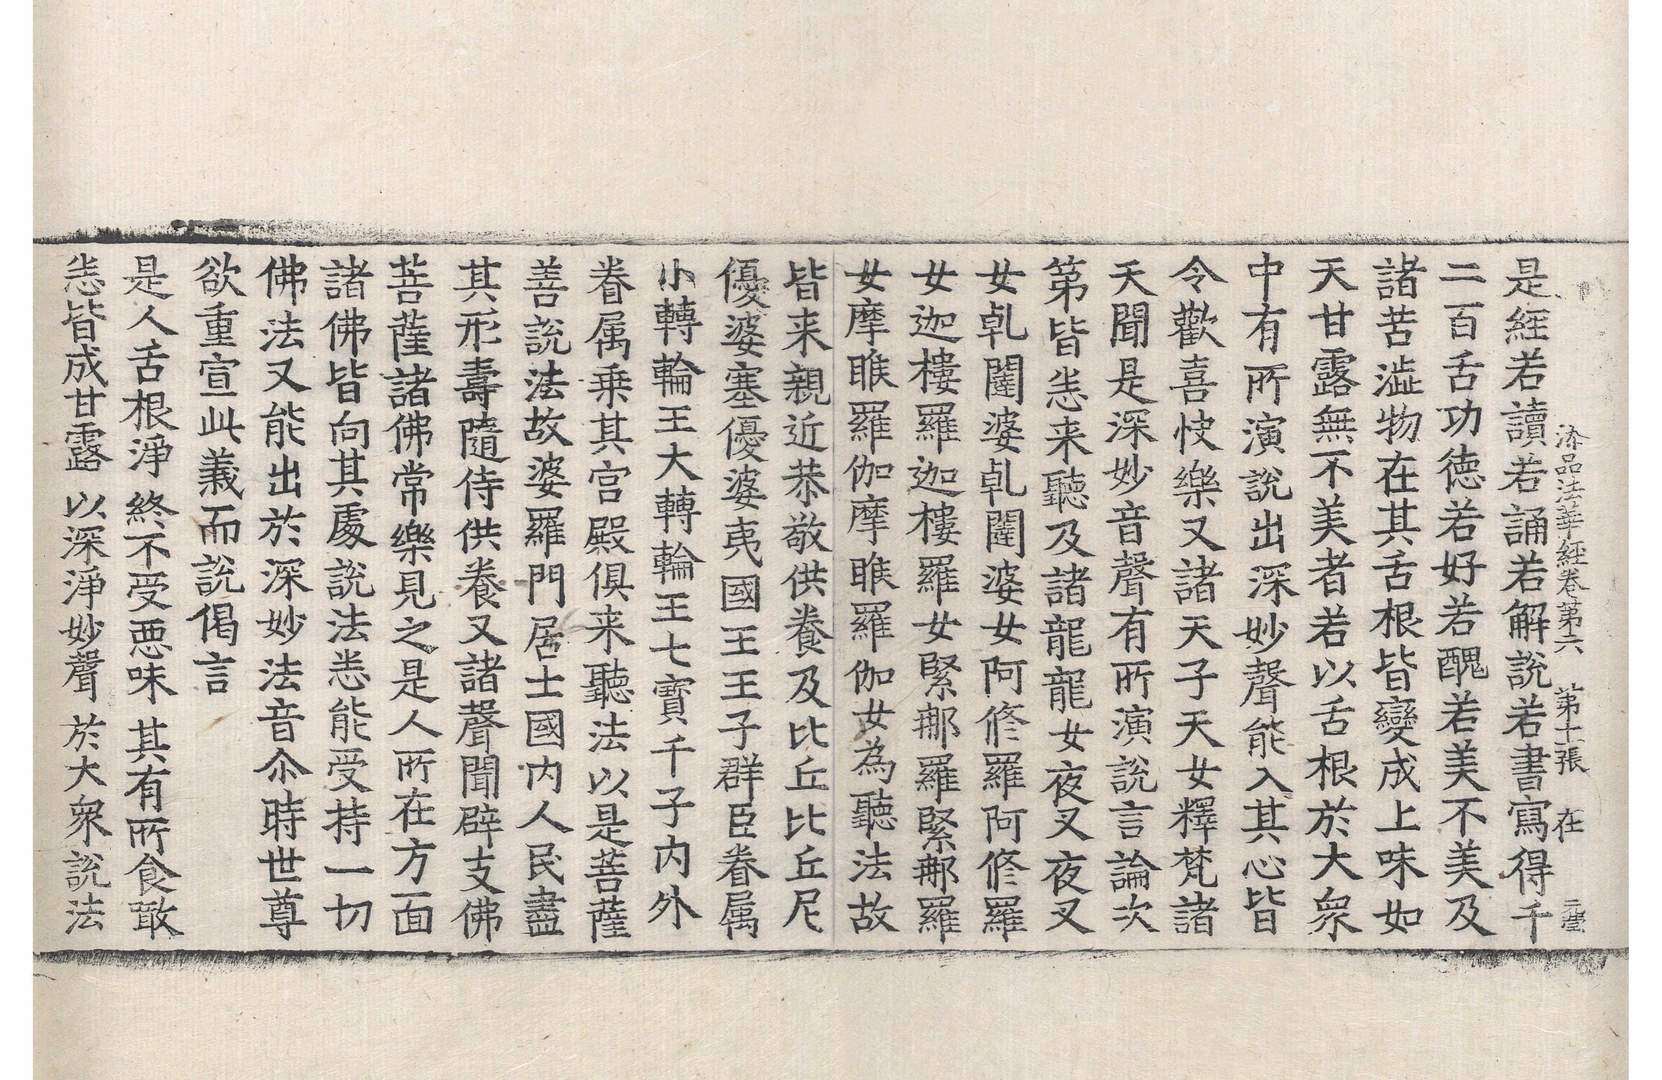 添品法華經卷第六 第十張 在
是經若讀若誦若解說若書寫得千
二百舌功德若好若醜若美不美及
諸苦澁物在其舌根皆變成上味如
天甘露無不美者若以舌根於大衆
中有所演說出深妙聲能入其心皆
令歡喜快樂又諸天子天女釋梵諸
天聞是深妙音聲有所演說言論次
第皆悉来聽及諸龍龍女夜叉夜叉
女乹闥婆乹闥婆女阿修羅阿修羅
女迦樓羅迦樓羅女緊那羅緊那羅
女摩睺羅伽摩睺羅伽女為聽法故
皆来親近恭敬供養及比丘比丘尼
優婆塞優婆夷國王王子群臣眷属
小轉輪王大轉輪王七寳千子内外
眷属乗其宫殿俱来聽法以是菩薩
善說法故婆羅門居士國内人民盡
其形壽隨侍供養又諸聲聞辟支佛
菩薩諸佛常樂見之是人所在方面
諸佛皆向其處說法悉能受持一切
佛法又能出於深妙法音尒時世尊
欲重宣此義而說偈言
是人舌根淨 終不受惡味 其有所食噉
悉皆成甘露 以深淨妙聲 於大衆說法